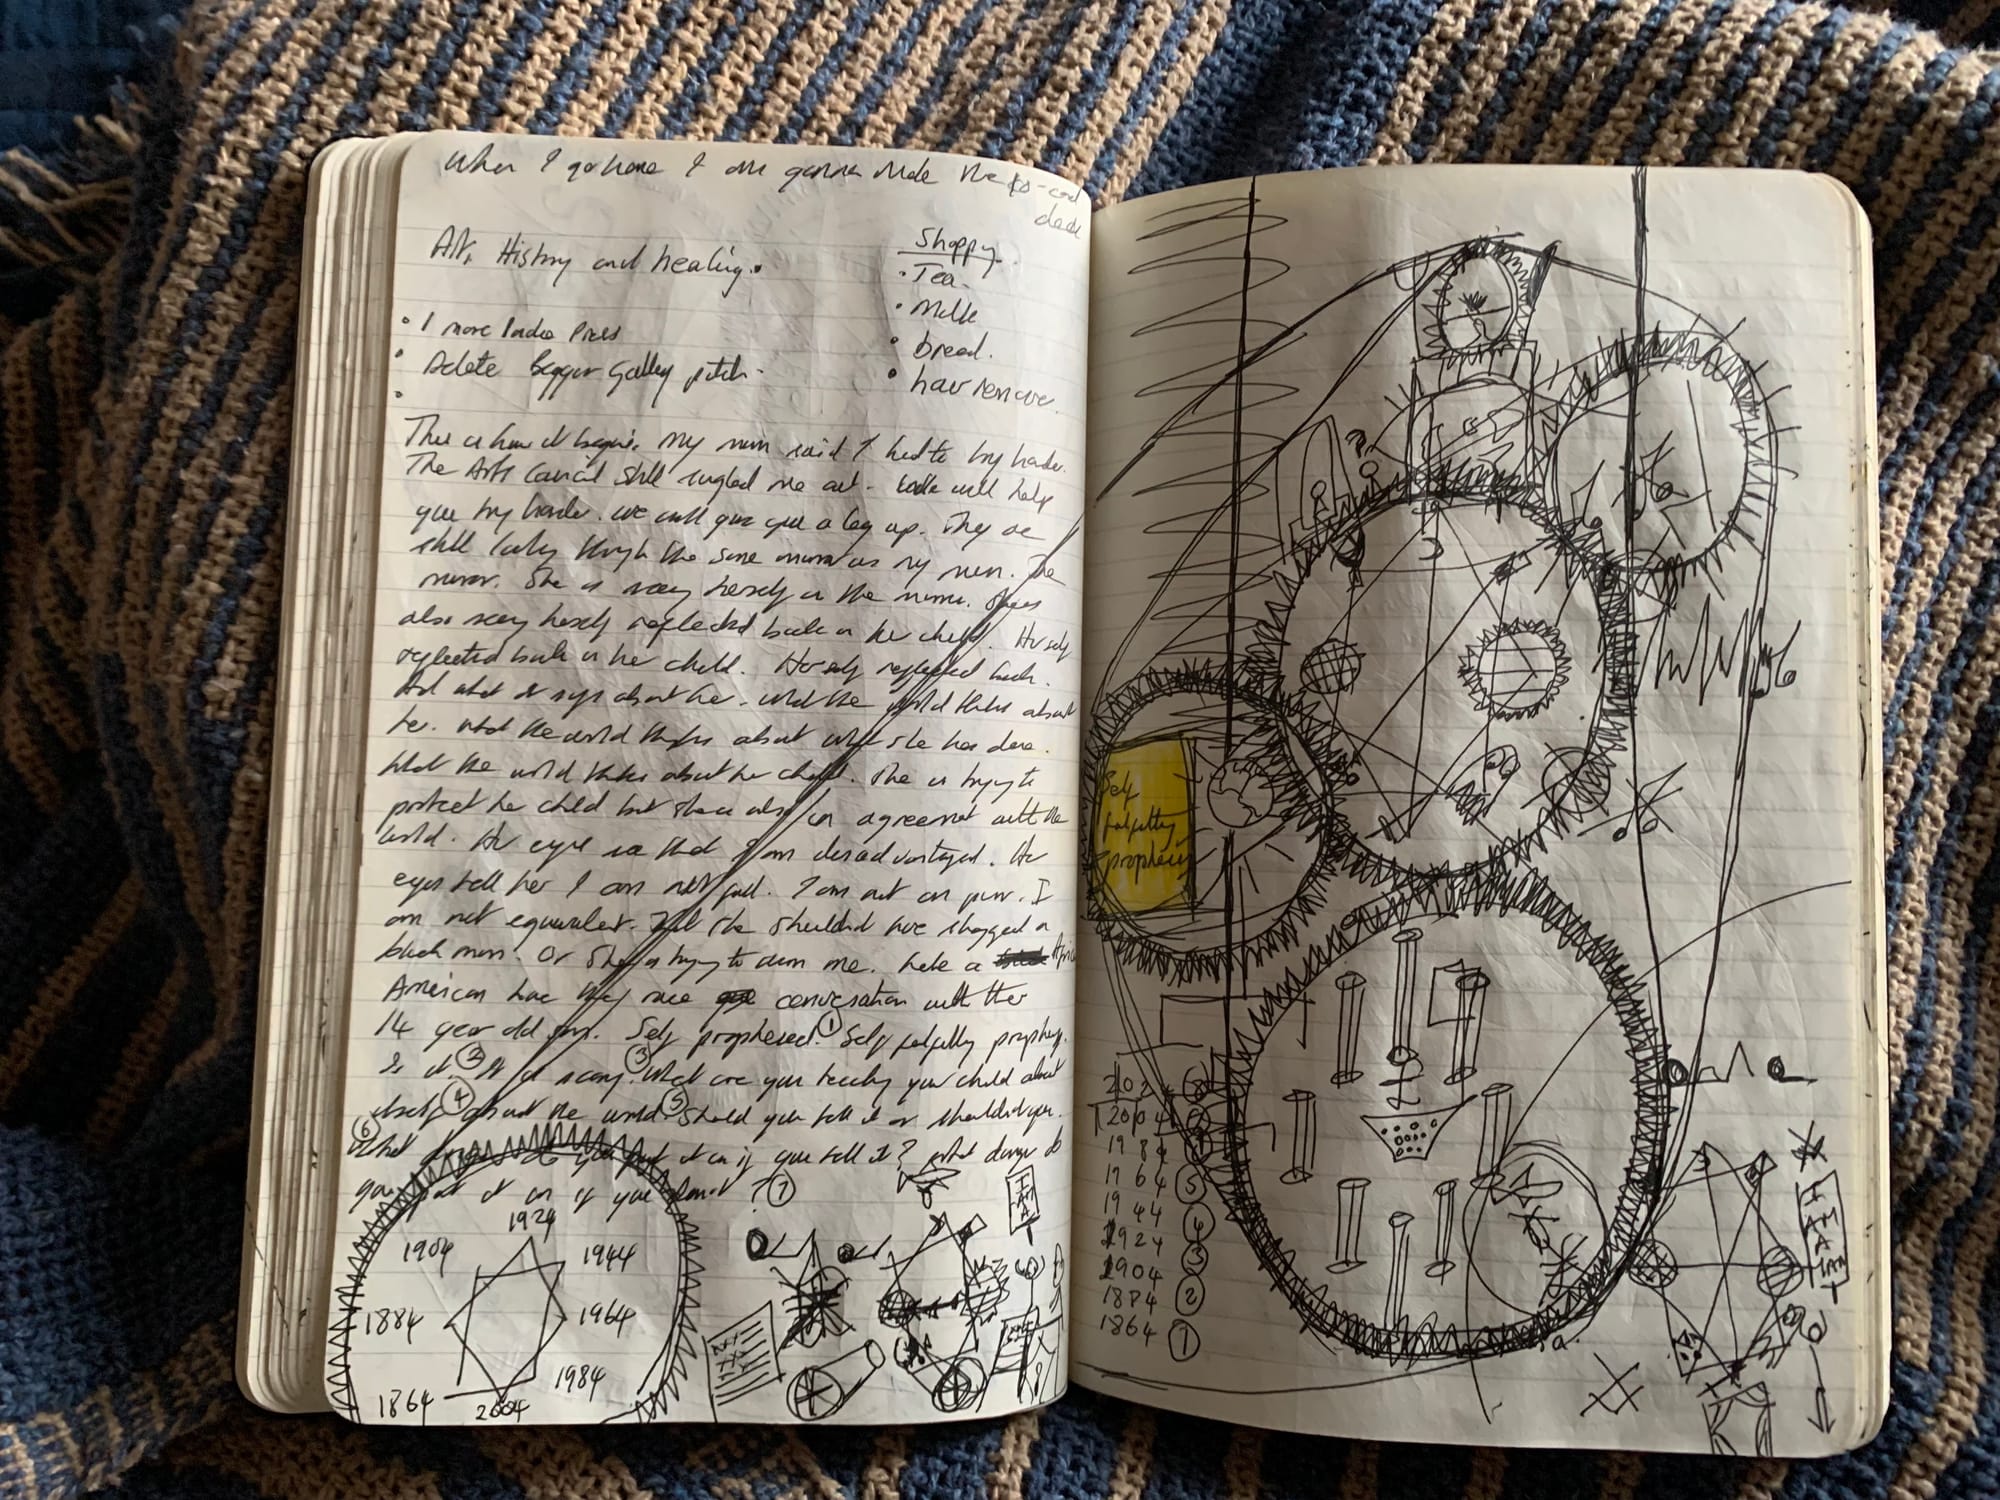 When I go home I am gonna make the
Art, History and healing.
Shoppy
• Tea
• Milk
• bread.
• hair remove
• 1 more
• Delete Bigger Gallery pitch
This is how it begins. My mum said I had to try harder.
The Arts Council still singled me out. will help
you try harder. we will give you a leg up. They are
still looking through the same mirror as my mum. The
mirror. She is seeing herself in the mirror. She is
also seeing herself reflected back in her child. Herself
reflected back in her child. Herself reflected back.
And what it says about her. what the world thinks about
her. what the world thinks about what she has done.
what the world thinks about her child. She is trying to
protect her child but she is also in agreement with the
world. Her eyes see that I am disadvantaged. Her
eyes tell her I am not full. I am not on par. I
am not equivalent. she shouldn't have shagged a
black man. Or she is trying to me. Like a
American have they race conversation with their
14 year old son. Self prophesied. ① Self fulfilling prophecy.
Is it ② ③ what are you teaching your child about
itself ④ about the world ⑤ Should you tell it or shouldn't you.
⑥ What danger do you put it in if you tell it? what danger do
you put it in if you don't? ⑦
1924
1904
1944
1884
1964
1864
2004
1984
I AM A
Self
fulfilling
prophecy
202
2004
198
1964 ⑤
1944 ④
1924 ③
1904
1884 ②
1864 ①
I AM A MAN